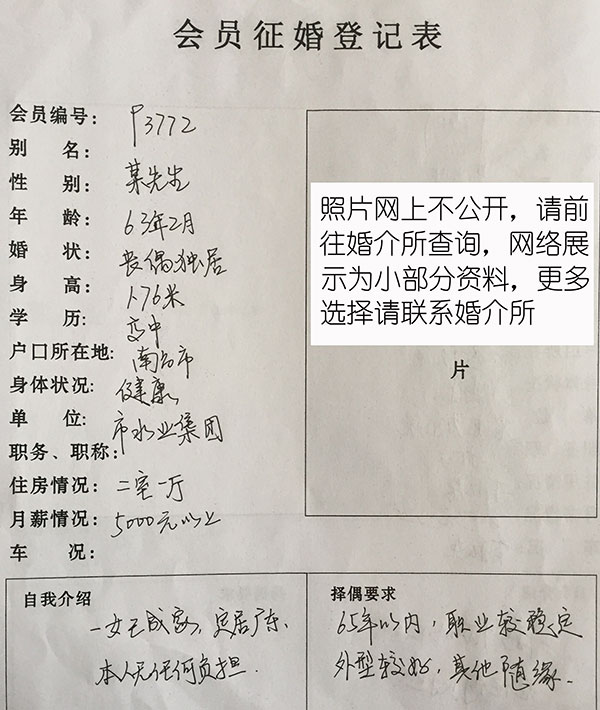 会员征婚登记表
会员编号: 男3772
别 名:
性 别: 某先生
年 龄: 63年2月
婚 状: 丧偶独居
身 高: 1.76米
学 历: 高中
户口所在地: 南昌市
身体状况: 健康
单 位: 市水业集团
职务、职称:
住房情况: 二室一厅
月薪情况: 5000元以上
车 况:
照片网上不公开，请前
往婚介所查询，网络展
示为小部分资料，更多
选择请联系婚介所
片
自我介绍
一女已成家，定居广东、
本人无任何负担.
择偶要求
65年以内，职业较稳定
外型较好，其他随缘.